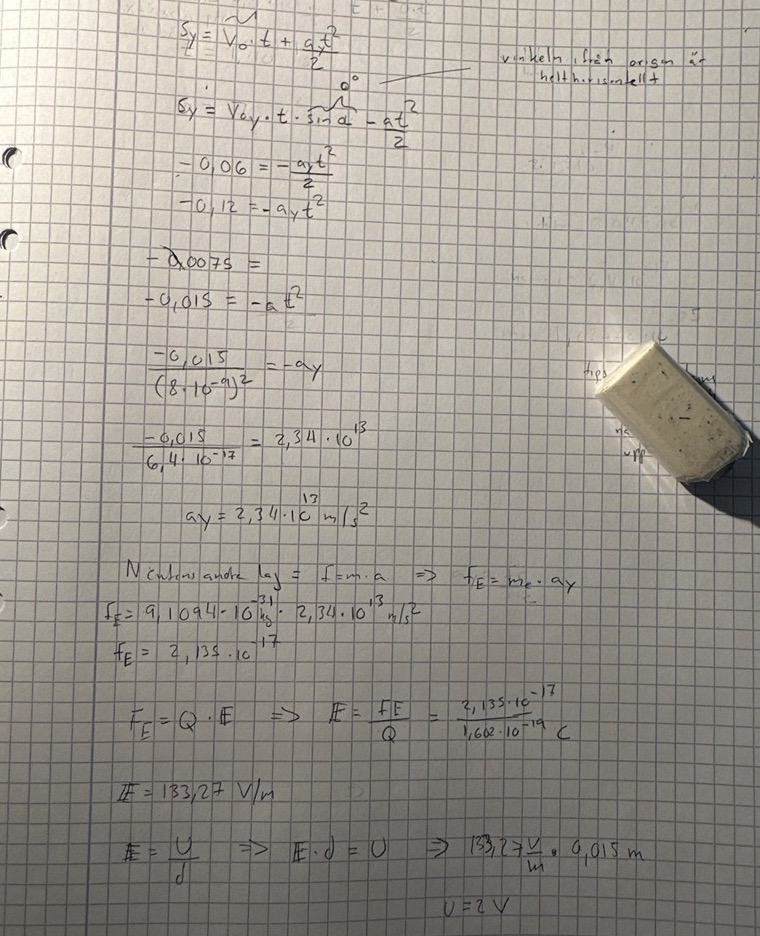 Sy = V₀ · t + ayt²/2
vinkeln från origin är
helt horisontellt
0°
Sy = V₀y · t · sin α - at²/2
-0,06 = -ayt²/2
-0,12 = -ayt²
-0,0075 =
-0,015 = -at²
-0,015/(8·10⁻⁹)² = -ay
-0,015/6,4·10⁻¹⁷ = 2,34·10¹³
ay = 2,34·10¹³ m/s²
Newtons andra lag = f=m·a => fE = me · ay
fE = 9,1094·10⁻³¹ kg · 2,34·10¹³ m/s²
fE = 2,135·10⁻¹⁷
FE = Q · E => E = FE/Q = 2,135·10⁻¹⁷/1,602·10⁻¹⁹ C
E = 133,27 V/m
E = U/d => E·d = U => 133,27 V/m · 0,015 m
U = 2 V
tips
upp